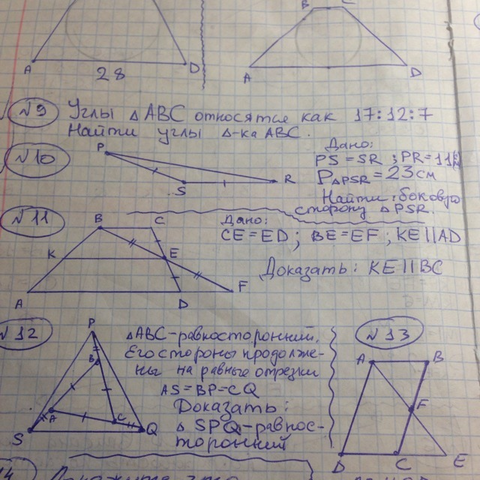 B C
A 28 D
A D
№9 Углы △ABC относятся как 17:12:7
Найти углы △-ка ABC.
№10
P
S
R
Дано:
PS = SR ; PR = 11
P△PSR = 23 см
Найти: боковую
сторону △PSR.
№11
B C
K E
A D F
Дано:
CE = ED ; BE = EF ; KE || AD
Доказать: KE || BC
№12
P
B
A C
S Q
△ABC - равносторонний.
Его стороны продолже-
ны на равные отрезки
AS = BP = CQ
Доказать:
△ SPQ - равнос-
торонний
№13
A B
F
D C E